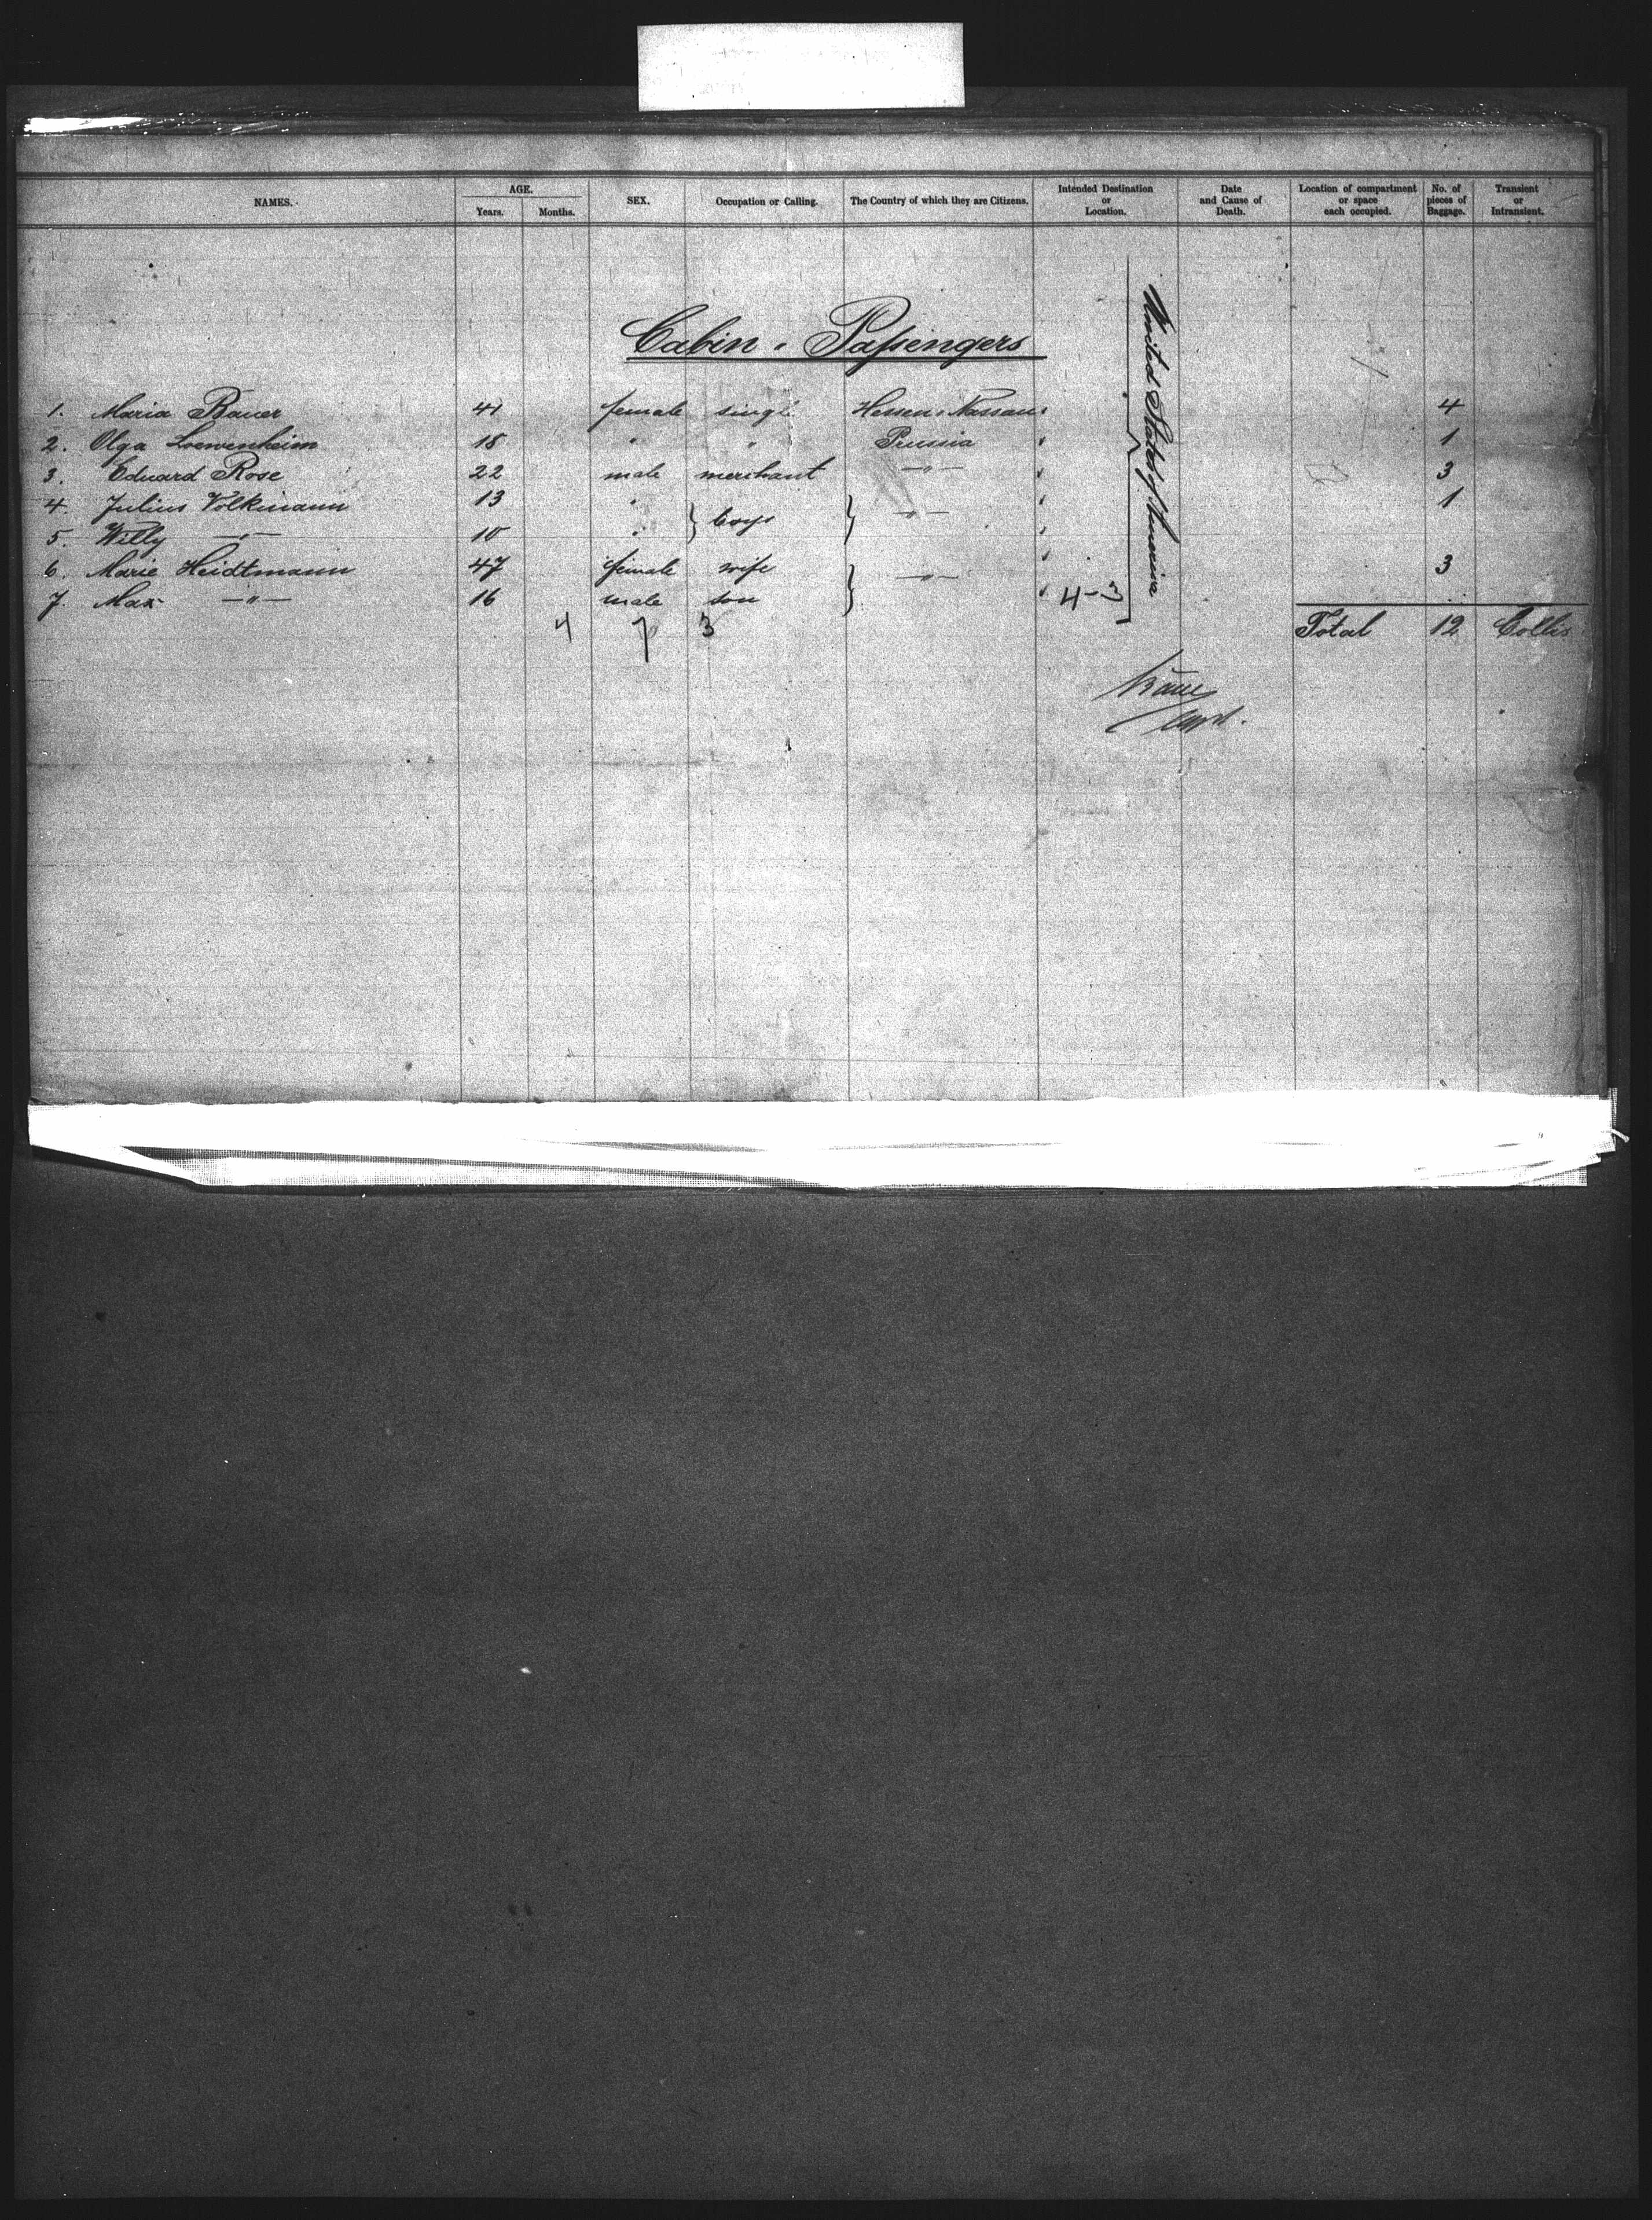 NAMES. AGE. Years. Months. SEX. Occupation or Calling. The Country of which they are Citizens. Intended Destination or Location. Date and Cause of Death. Location of compartment or space each occupied. No. of pieces of Baggage. Transient or Intransient.
Cabin - Passengers
United States of America
1. Maria Bauer 41 female single Hessen-Nassau 4
2. Olga Loewenheim 18 " " Prussia 1
3. Eduard Rose 22 male merchant —"— 3
4. Julius Volkmann 13 " } boys } —"— 1
5. Willy —"— 10 "
6. Marie Heidtmann 47 female wife } —"— 3
7. Max —"— 16 male son 4-3
4 7 3 Total 12 Collis
Capt.